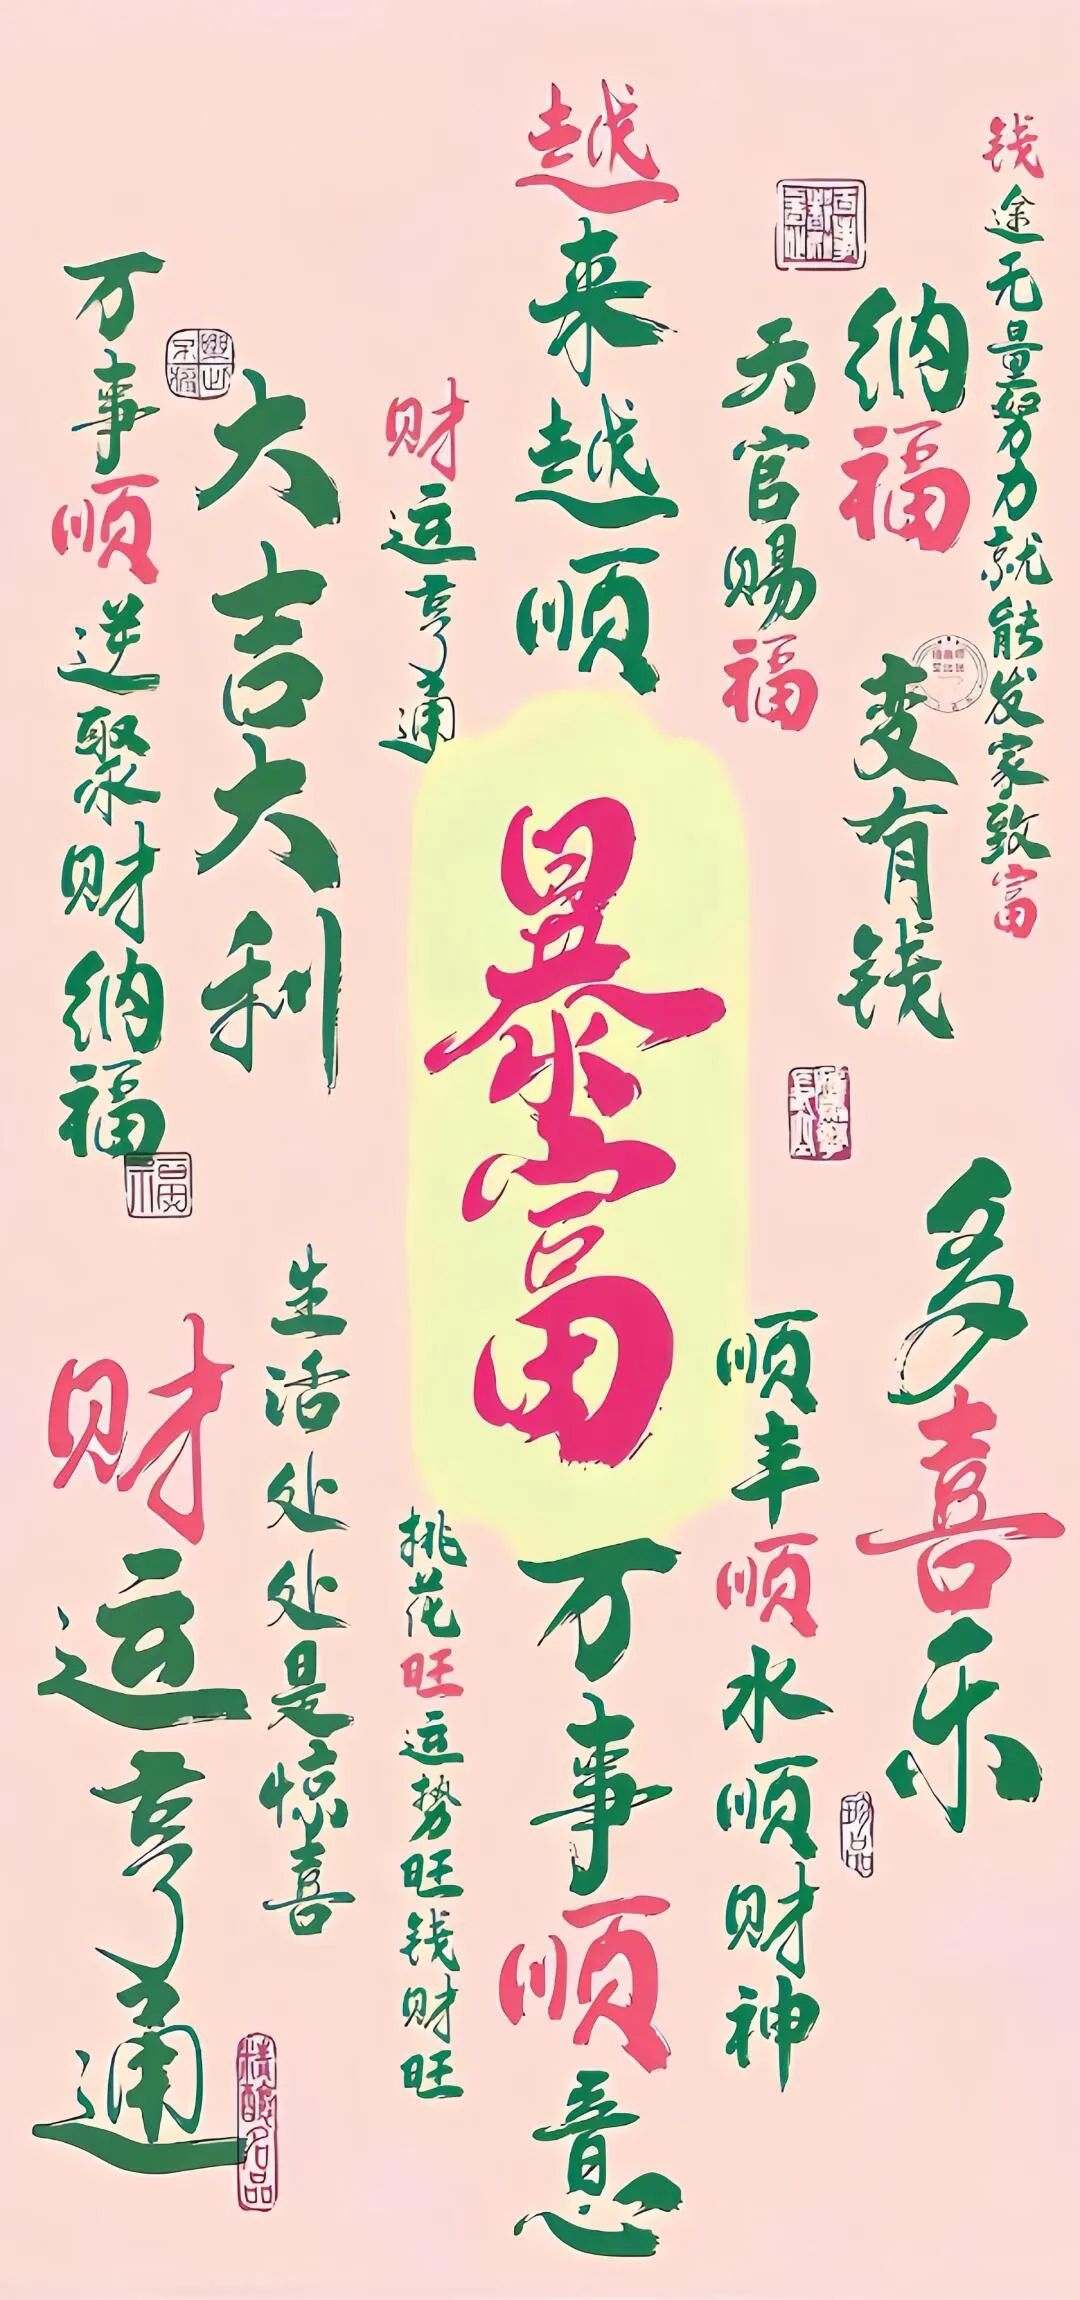 钱途无量努力就能发家致富
纳福
变有钱
天官赐福
多喜乐
顺丰顺水顺财神
珍品
越来越顺
暴富
万事顺意
财运亨通
桃花旺运势旺钱财旺
大吉大利
万事顺逆聚财纳福
福
生活处处是惊喜
财运亨通
精酿名品